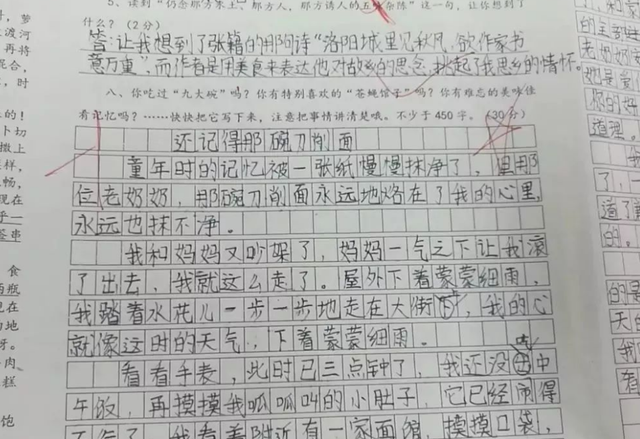 5、读到“仍念那方水土、那方人、那方诱人的五味杂陈”这一句，让你想到了
什么？（2分）
答：让我想到了张籍的那句诗“洛阳城里见秋风，欲作家书
意万重”，而作者是用美食来表达他对故乡的思念，挑起了我思乡的情怀。
八、你吃过“九大碗”吗？你有特别喜喜欢的“苍蝇馆子”吗？你有难忘的美味佳
肴记忆吗？……快快把它写下来，注意把事情讲清楚哦。不少于450字。（30分）
还记得那碗刀削面
童年时的记忆被一张纸慢慢抹净了，里那
位老奶奶，那碗刀削面永远地烙在了我的心里，
永远也抹不净。
我和妈妈又吵架了，妈妈一气之下让我滚
了出去，我就这么走了。屋外下着蒙蒙细雨，
我踏着水花儿一步一步地走在大街上，我的心
就像这时的天气，下着蒙蒙细雨。
看看手表，此时已三点钟了，我还没吃中
午饭，再摸摸我呱呱叫的小肚子，它已经闹得
天气了，我看着附近有一家面馆，摸摸口袋，